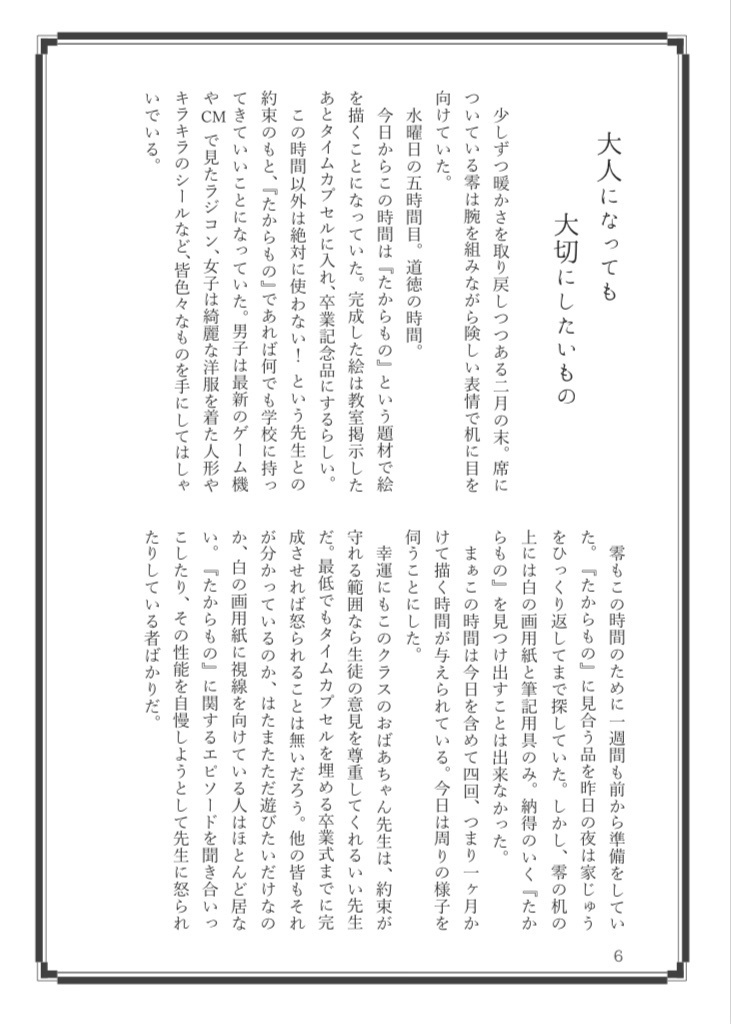 大人になっても
大切にしたいもの
少しずつ暖かさを取り戻しつつある二月の末。席に
ついている零は腕を組みながら険しい表情で机に目を
向けていた。
水曜日の五時間目。道徳の時間。
今日からこの時間は『たからもの』という題材で絵
を描くことになっていた。完成した絵は教室掲示した
あとタイムカプセルに入れ、卒業記念品にするらしい。
この時間以外は絶対に使わない！ という先生との
約束のもと、『たからもの』であれば何でも学校に持っ
てきていいことになっていた。男子は最新のゲーム機
やCMで見たラジコン、女子は綺麗な洋服を着た人形や
キラキラのシールなど、皆色々なものを手にしてはしゃ
いでいる。
零もこの時間のために一週間も前から準備をしてい
た。『たからもの』に見合う品を昨日の夜は家じゅう
をひっくり返してまで探していた。しかし、零の机の
上には白の画用紙と筆記用具のみ。納得のいく『たか
らもの』を見つけ出すことは出来なかった。
まぁこの時間は今日を含めて四回、つまり一ヶ月か
けて描く時間が与えられている。今日は周りの様子を
伺うことにした。
幸運にもこのクラスのおばあちゃん先生は、約束が
守れる範囲なら生徒の意見を尊重してくれるいい先生
だ。最低でもタイムカプセルを埋める卒業式までに完
成させれば怒られることは無いだろう。他の皆もそれ
が分かっているのか、はたまたただ遊びたいだけなの
か、白の画用紙に視線を向けている人はほとんど居な
い。『たからもの』に関するエピソードを聞き合いっ
こしたり、その性能を自慢しようとして先生に怒られ
たりしている者ばかりだ。
6